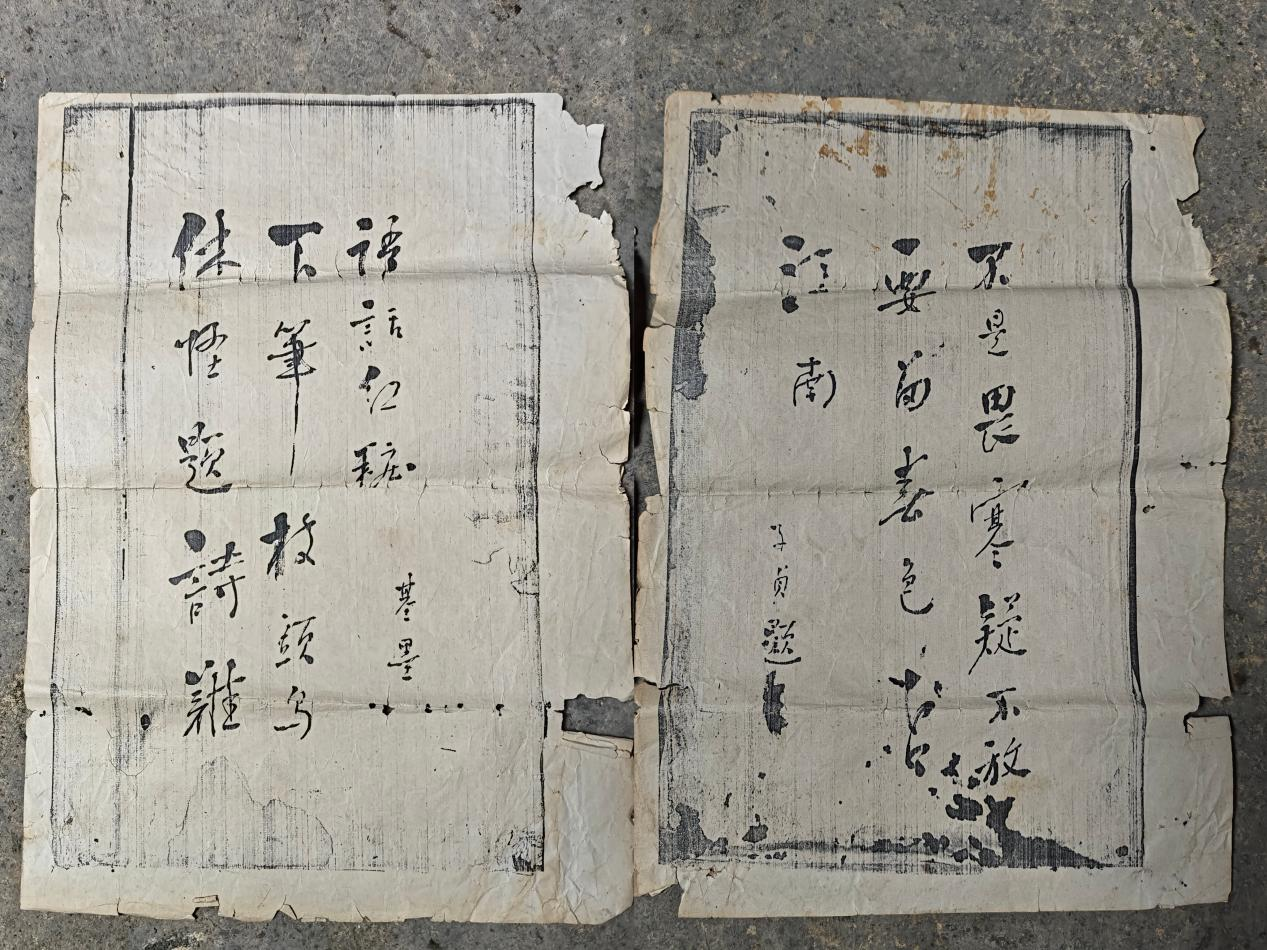 不是畏寒疑不放
要留春色占
江南
子貞題
休怪題詩難
下筆枝頭鳥
語話紅粧
基墨